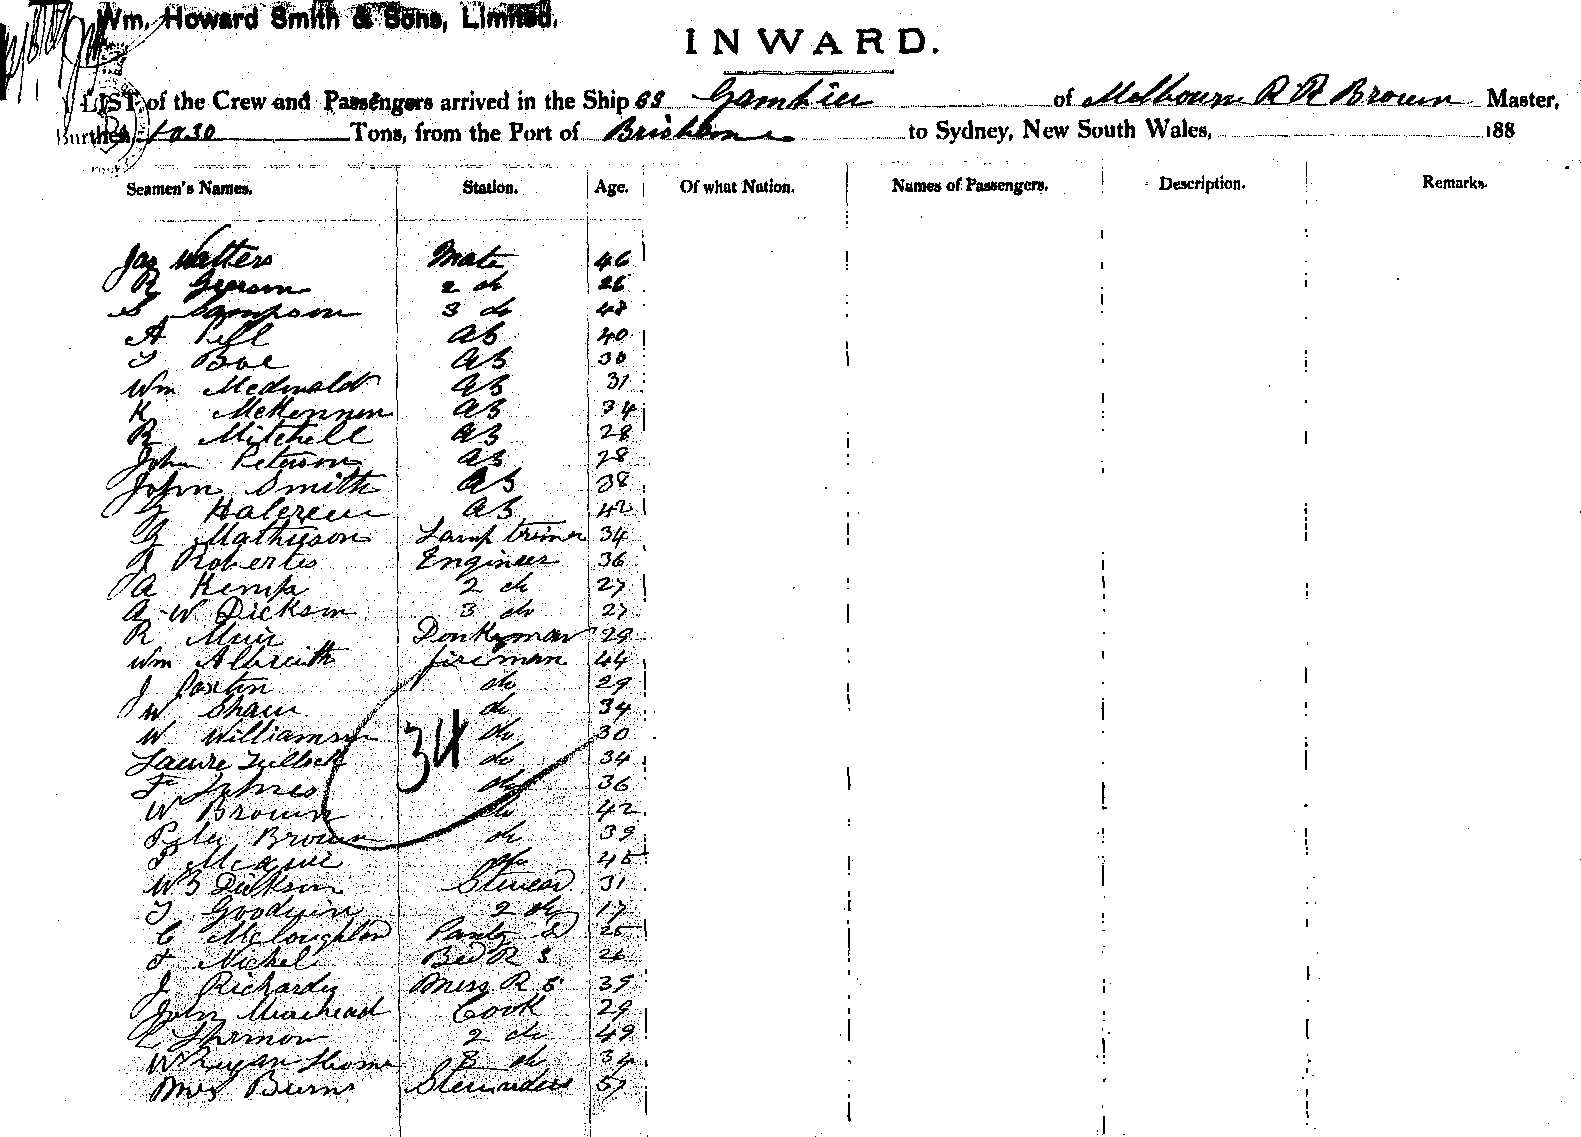 Wm. Howard Smith & Sons, Limited.
INWARD.
LIST of the Crew and Passengers arrived in the Ship SS Gambier of Melbourn R R Brown Master,
Burthen 1030 Tons, from the Port of Brisbane to Sydney, New South Wales, 188
Seamen's Names. Station. Age. Of what Nation. Names of Passengers. Description. Remarks.
Jas Watters Mate 46
R 2 do 26
S Sampson 3 do 48
A Pell AB 40
T Boe AB 30
Wm Mcdonald AB 31
K McKennon AB 34
R Mitchell AB 28
John Peterson AB 28
John Smith AB 38
AB 42
G Mathieson Lamp trimer 34
J Roberts Engineer 36
A Kemp 2 do 27
A W Dickson 3 do 27
R Muir Donkeyman 29
Wm Albreith fireman 44
J Paxtin do 29
W Shaw do 34
W Williamson do 30
34
Laure Tullock do 34
F Johnes do 36
W Brown do 42
Peter Brown do 39
P do 45
W S Dickson Steward 31
T Goodwin 2 do 17
C McLoughlan Pantry S 25
F Nichol Bed R S
J Richards Mess R S 39
John Muirhead Cook 29
2 do 49
W Ryan 3 do 34
Mrs Burns Stewardess 57